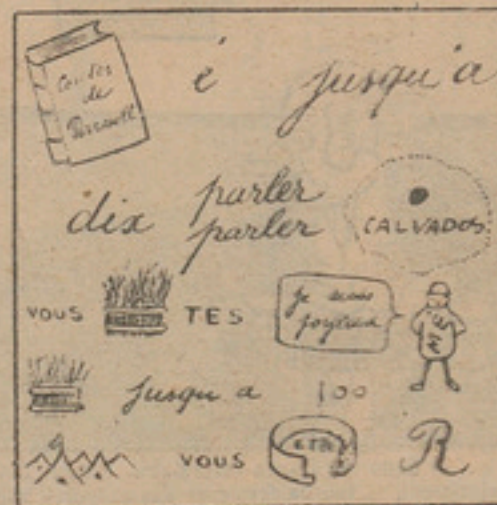 Contes
de
Perrault
é jusqu'a
dix parler
parler
CALVADOS
VOUS TES
je suis
joyeux
jusqu a 100
VOUS R